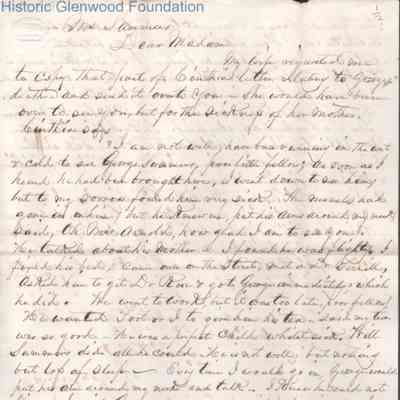 Historic Glenwood Foundation
Mrs Summers
Dear Madam
My wife requested me
to copy that part of Cinthia's letter relating to George's
death and send it over to you – she would have been
over to see you, but for the sickness of her Mother.
Cinthia says
"I am not well, have been running in the wet
& cold to see George Summers, poor little fellow! As soon as I
heard he had been brought here, I went down to see him;
but to my sorrow found him very sick. The measles had
gone in on him; but he knew me, put his arms around my neck,
said, Oh Miss, how glad I am to see you.
He talked about his mother &c. I found he was flighty. I
his feet, came over on the Street, met a Dr
asked him to get Dr & go to George immediately, which
he did. He went to work, but it was too late, poor fellow!
He wanted I or I to give him his tea. Said my tea
was so good – He was a perfect Child whilst sick. Will
Summers did all he could. He is not well, but nothing
but loss of sleep – Every time I would go in, George would
put his arm around my neck and talk. I knew he could not